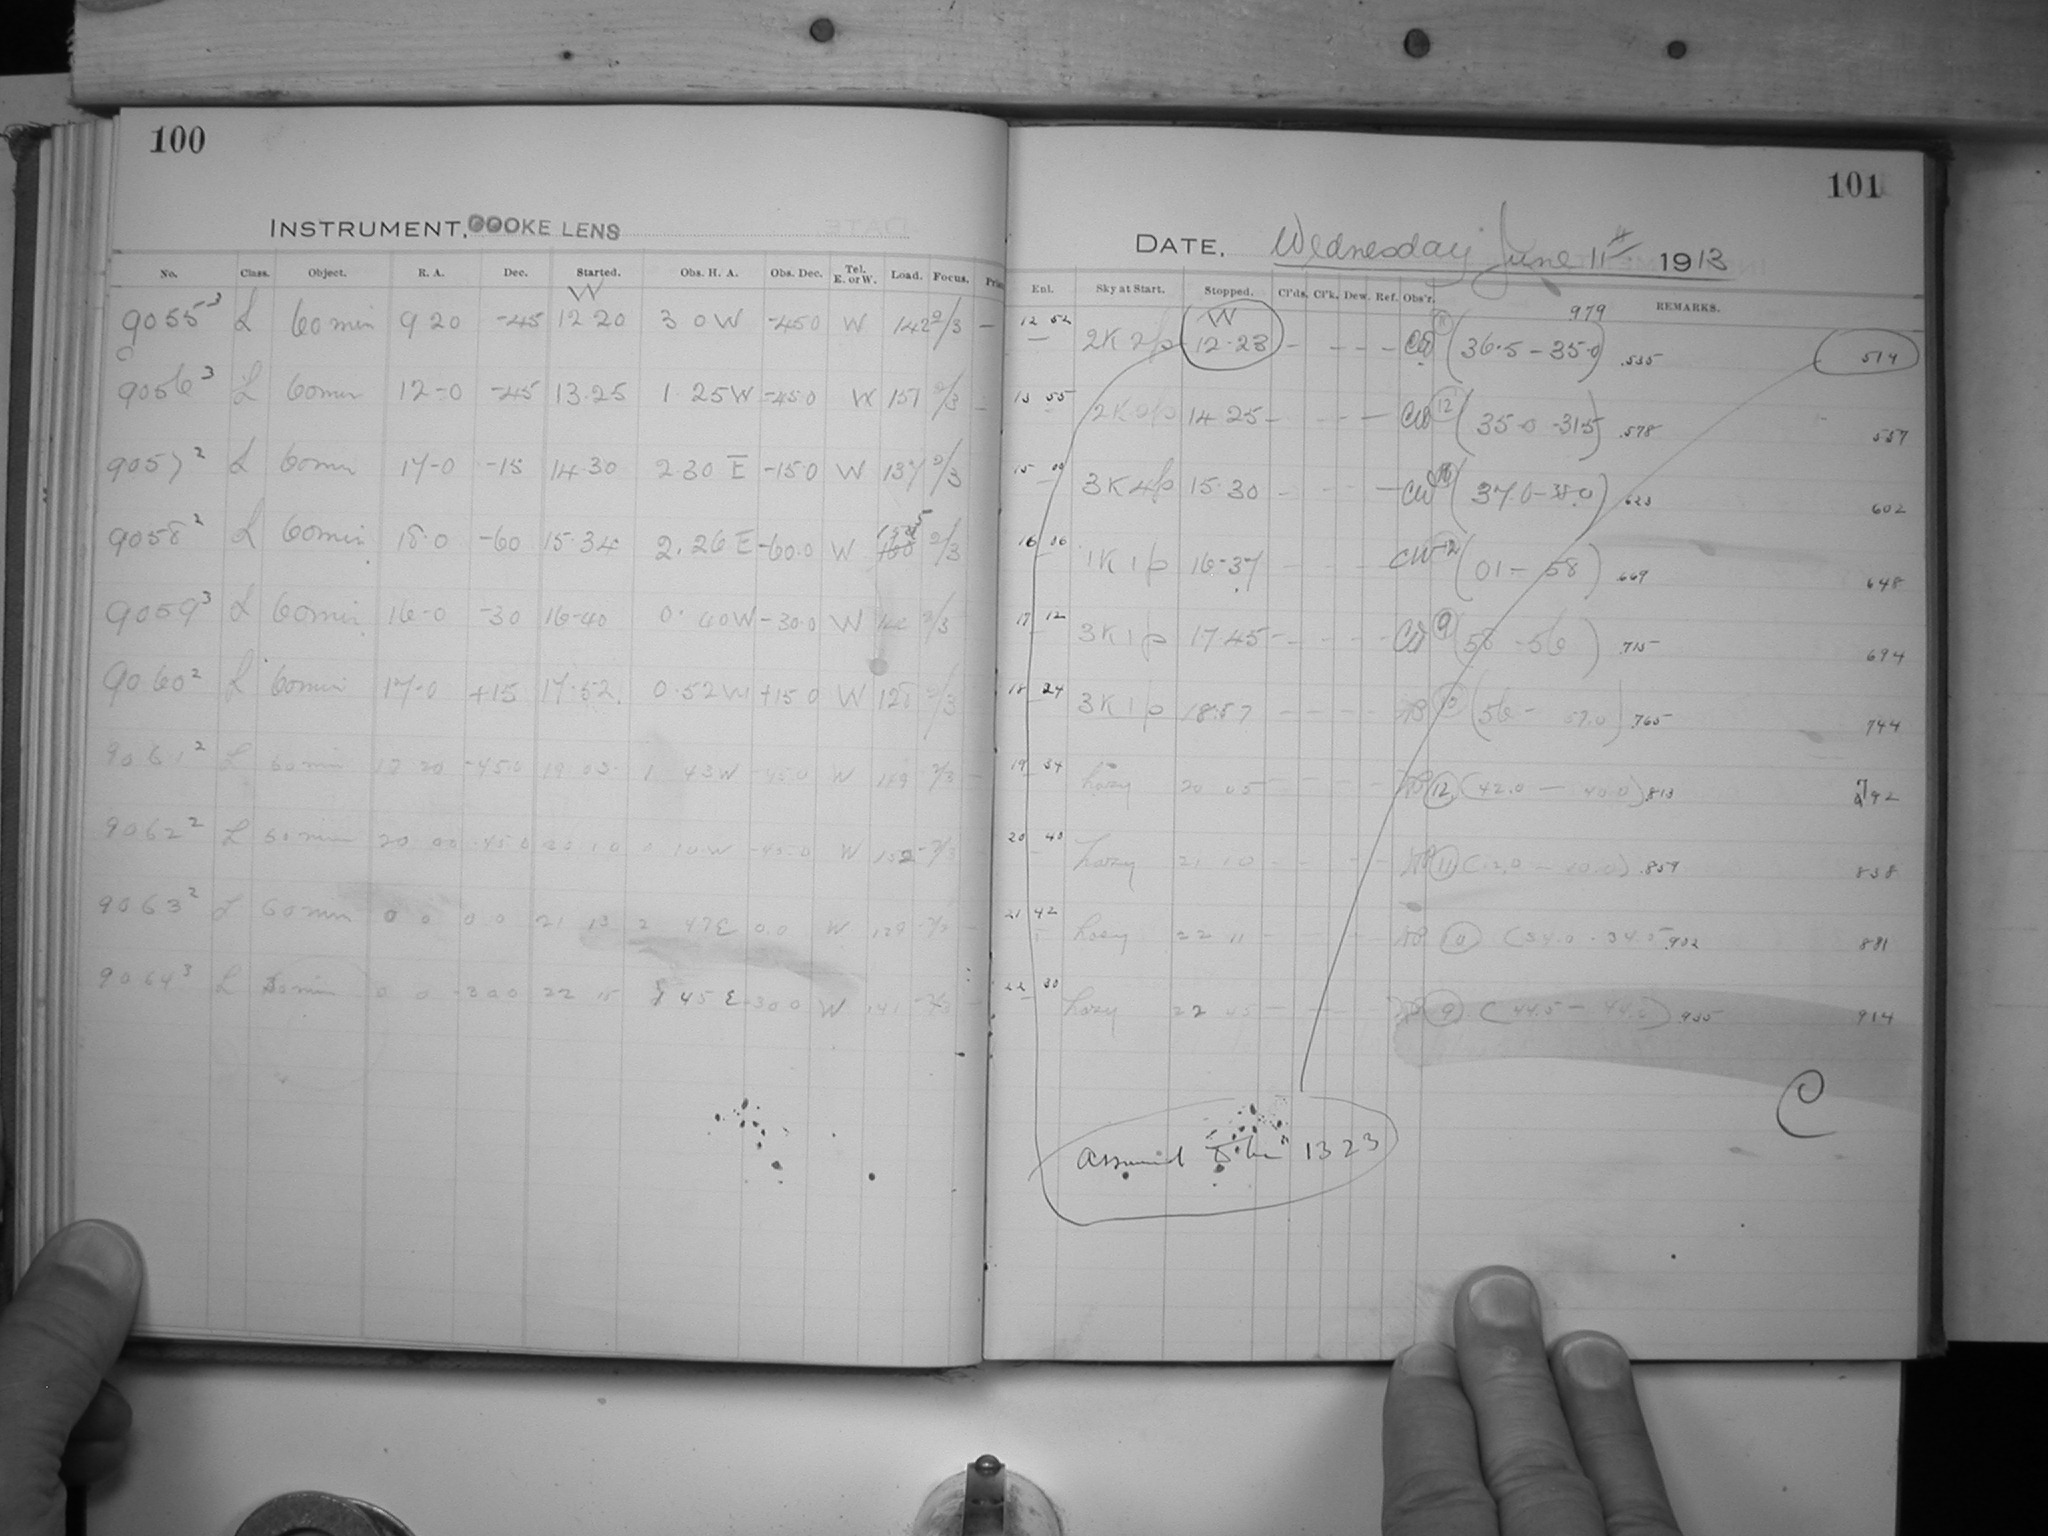 100
INSTRUMENT, COOKE LENS
No. Class. Object. R. A. Dec. Started. Obs. H. A. Obs. Dec. Tel. E. or W. Load. Focus.
W
9055 3 L 60 min 9 20 -45 12 20 3 0 W -450 W 142 2/3 —
9056 3 L 60 min 12-0 -45 13.25 1. 25 W -45.0 W 157 2/3 —
9057 2 L 60 min 17-0 -15 14.30 2 30 E -15 0 W 137 2/3
9058 2 L 60 min 18.0 -60 15.34 2. 26 E -60.0 W 2/3
9059 3 L 60 min 16-0 -30 16-40 0. 40 W -30.0 W 2/3
9060 2 L 60 min 17-0 +15 17.52 0.52 W +15 0 W 128 2/3
9061 2 L 60 min -45.0 19 03 1 43 W -45.0 W 149 2/3
9062 2 L 60 min 20 00 -45 0 20 10 0 10 W -45.0 W 152 2/3
9063 2 L 60 min 0 0 0 0 21 13 2 47 E 0.0 W 2/3
9064 3 L 30 min 0 0 -30 0 22 15 45 E -30 0 W 141 2/3
101
DATE, Wednesday June 11th 1913
Ent. Sky at Start. Stopped. Cl'ds. Cl'k. Dew. Ref. Obs'r. REMARKS.
979
W
12 52 2K 2p 12.23 - - - - CW (36.5 - 35.0) .535 514
13 55 14 25 - - - - CW 12 (35.0 - 31.5) .578 557
15 00 3K 4p 15.30 - - - - CW (37.0 - 38.0) .623 602
16 06 1K 1p 16-37 - - - - CW 12 (01 - 58) .669 648
17 12 3K 1p 17 45 - - - - CW 9 (58 - 56) .715 694
18 24 3K 1p 18.57 - - - - (56 - 57.0) .765 744
19 34 hazy 20 05 - - - - 12 (42.0 - 40.0) .813 792
20 40 hazy 21 10 - - - - 11 .859 838
21 42 hazy 22 11 - - - - (34.0 - 34.5) .902 881
22 30 hazy 22 45 - - - - 9 (44.5 - 44.0) .935 914
C
Assumed "to be" 1323